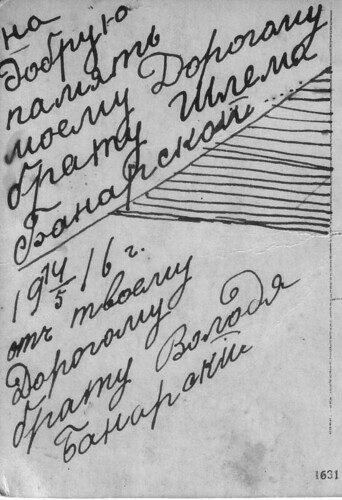 на
добрую
память
моему Дорогому
брату Шлема
Банарской
19 14/5 16 г.
отъ твоему
Дорогому
брату Володя
Банарскій
1631